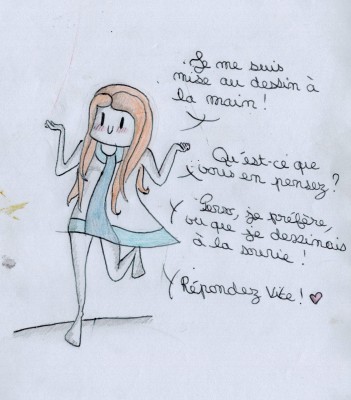 Je me suis
mise au dessin à
la main !
Qu'est-ce que
vous en pensez ?
Perso, je préfère,
vu que je dessinais
à la souris !
Répondez Vite ! ♥